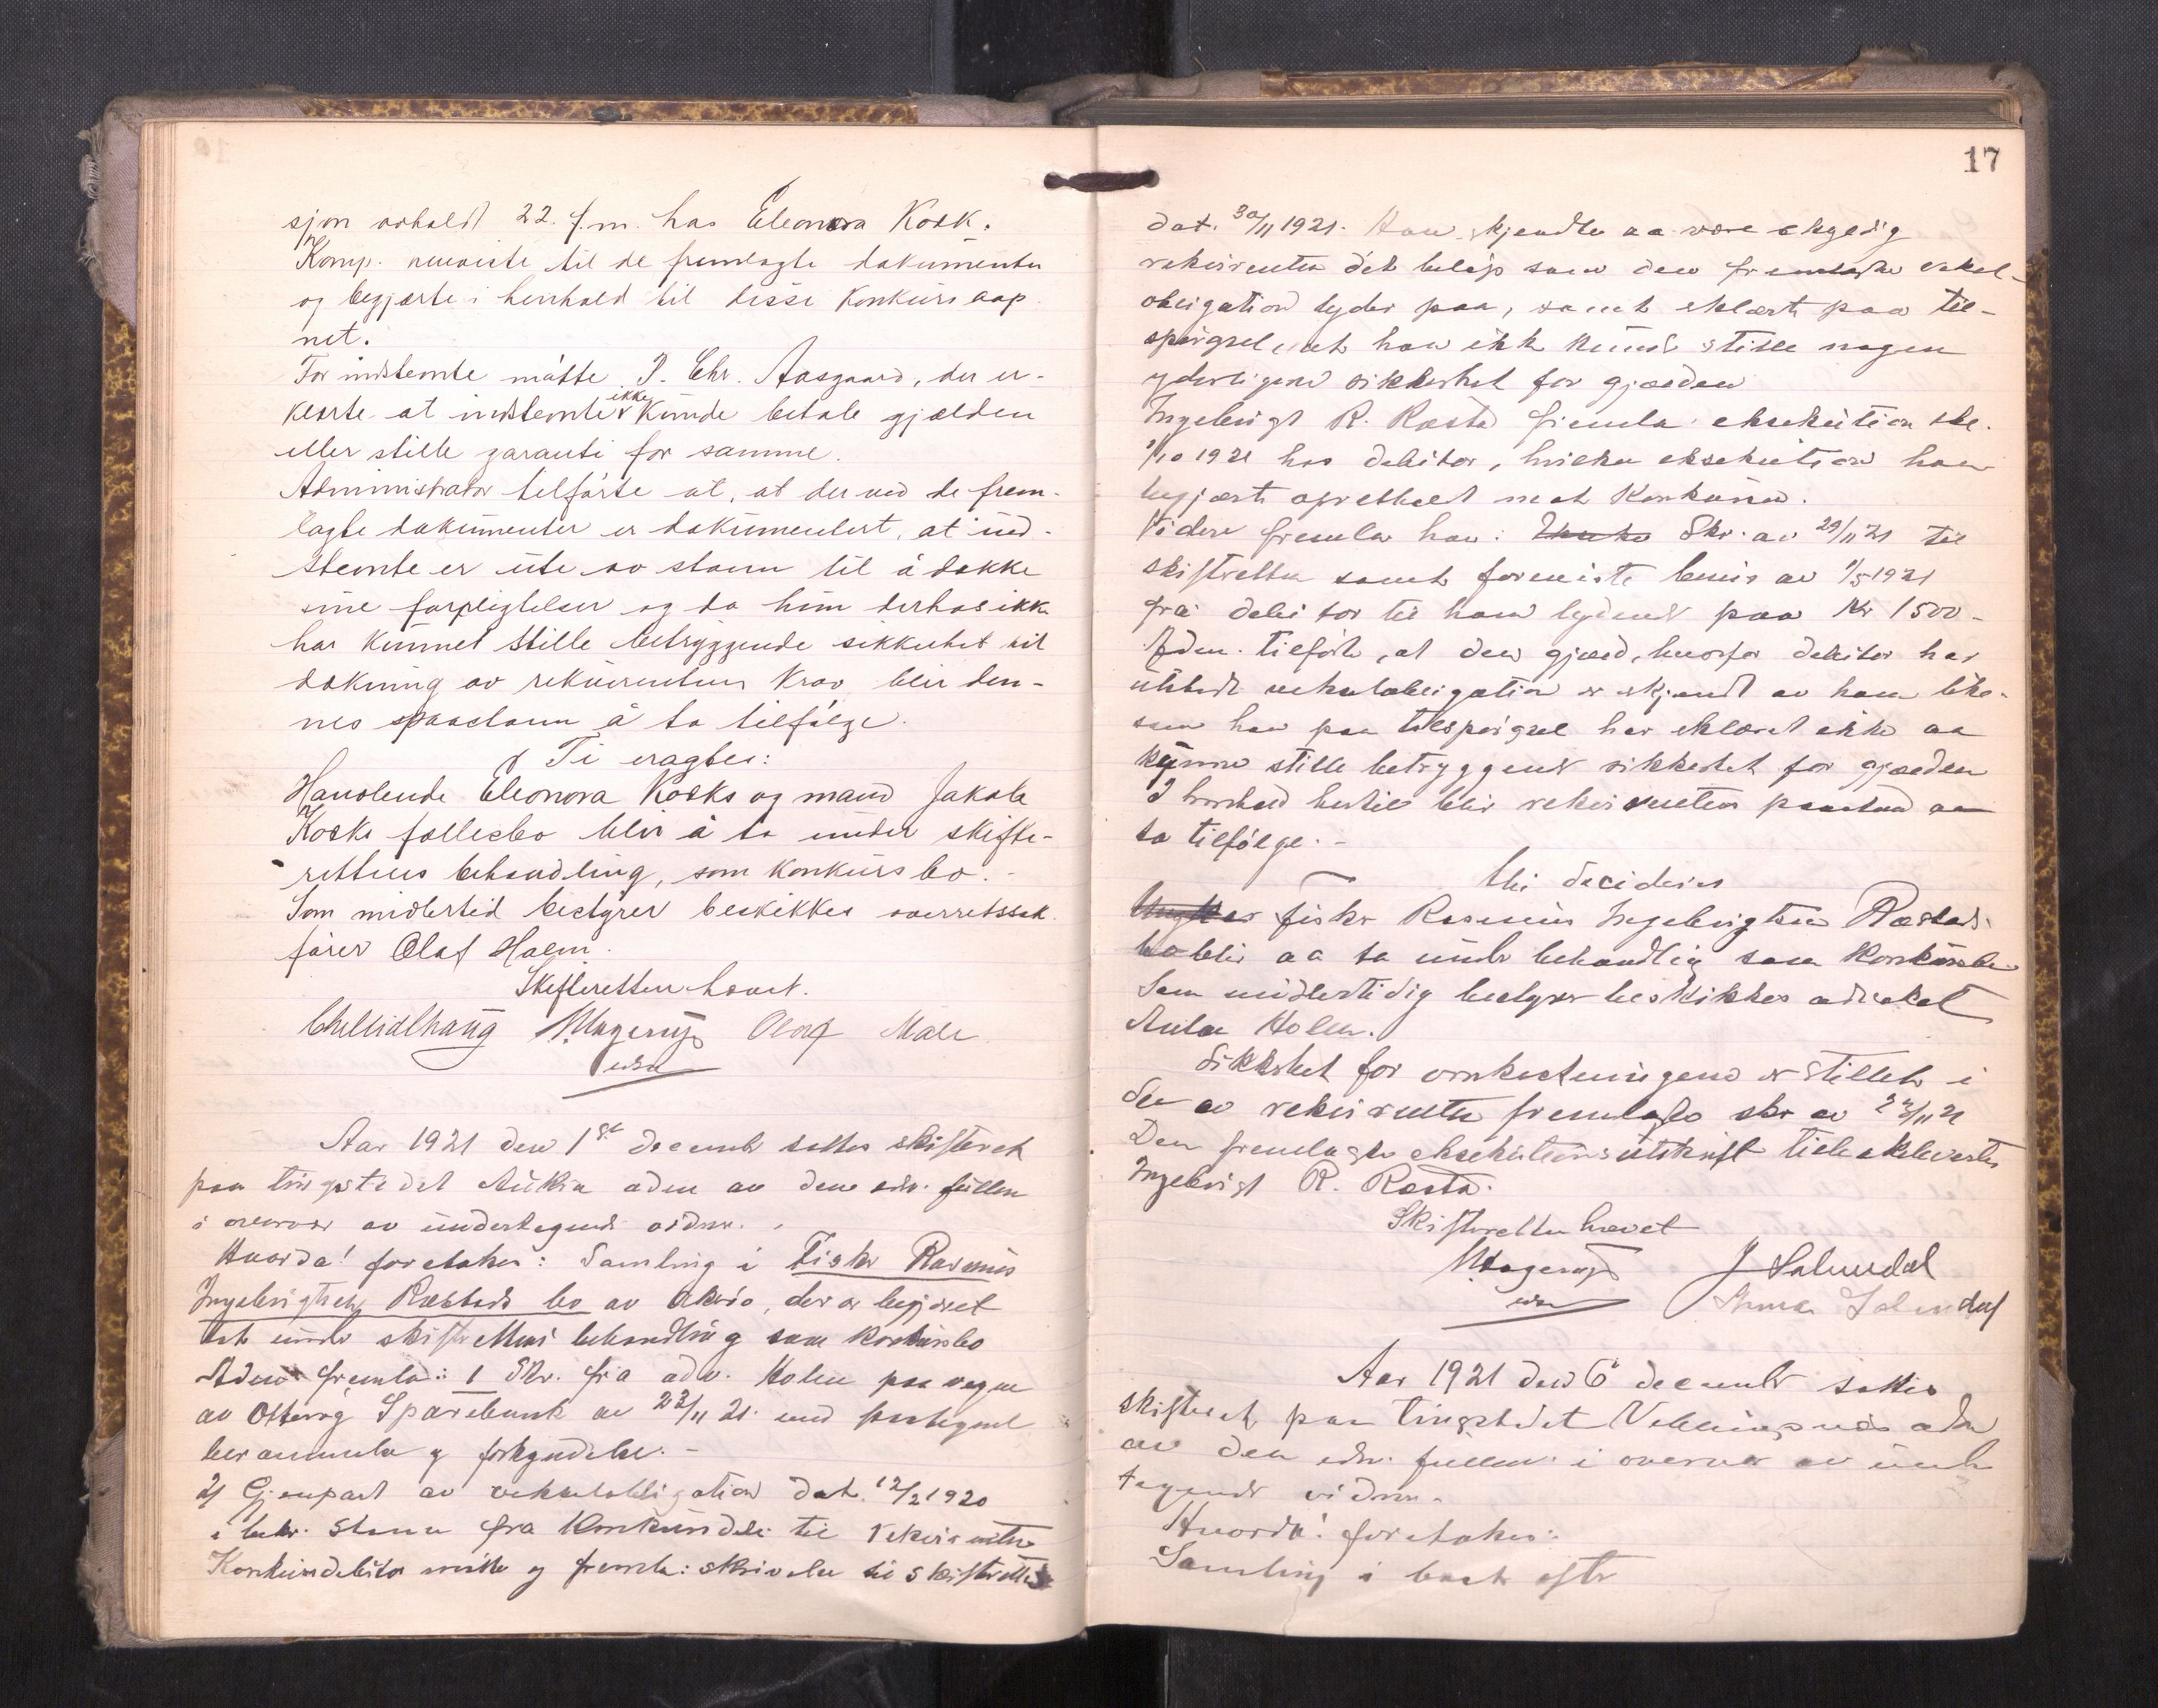 sjon avholdt 22. f.m. hos Eleonora Kosk.
Komp. henviste til de fremlagte dokumenter
og begjærte i henhold til disse konkurs aap
net.
For indstemte møtte P. Chr. Aasgaard, der er-
klærte at indstemte ikke kunde betale gjælden
eller stille garanti for samme.
Administrator tilførte at, at der ved de frem-
lagte dokumenter er dokumentert, at ind-
stemte er ute av stann til å dekke
sine forpligtelser og da hun derhos ikke
har kunnet stille betryggende sikkerhet til
dekning av rekvirentens krav blir den-
nes paastann å ta tilfølge.
Ti eragtes:
Hanolende Eleonora Kosks og mand Jakob
Kosks fællesbo blir å ta under skifte-
rettens behandling, som konkursbo.-
Som midlertid bestyrer beskikkes overretssak
fører Olaf Holm.
Skifteretten hævet.
Olaf Male
Aar 1921 den 1st december sattes skifteret
paa tingstedet Aukra adm av den edv. fullm
i overvær av undertegnede vidner.
Hvorda! foretokes: Samling i Fisker Rasmus
Ingebrigtsen Ræstads bo av Akerø, der er begjæret
tat under skifterettens behandling som konkursbo
Adm fremla: 1 Skr. fra adv. Holm paa vegne
av Otterøy Sparebank av 22/11 21. med paategnet
berammelse og forkyndelse.-
2) Gjenpart av vekselobligation dat. 12/2 1920
i bekr. stann fra konkursdeb. til rekvirenten
Konkursdebitor møtte og fremla: skrivelse til skifteretten
17
dat. 30/11 1921. Han erkjendte aa være skyldig
rekvirenten det beløp som den fremlagte veksel-
obligation lyder paa, samt erklærte paa til-
spørgsel, at han ikke kunde stille nogen
yderligere sikkerhet for gjælden
Ingebrigt R. Ræsta fremla eksekution
1/10 1921 hos debitor, hvilken eksekution han
begjærte opretholdt mot konkursen.
Videre fremla han: Skr. av 29/11 21 til
skifteretten samt foreviste bevis av 1/5 1921
fra debitor til ham lydende paa Kr 1500-
Adm. tilførte, at den gjæld, hvorfor debitor har
utstedt vekselobligation er erkjendt av ham like-
som han paa tilspørgsel har erklæret ikke aa
kunne stille betryggende sikkerhet for gjælden
I henhold hertil blir rekvirentens paastand aa
ta tilfølge.-
thi decideres
fisker Rasmus Ingebrigtsen Ræstads
bo blir aa ta under behandling som konkursbo
Som midlertidig bestyrer beskikkes advokat
Anton Holen.
Sikkerhet for omkostningene er stillet i
den av rekvirenten fremlagte skr av 22/11 21
Den fremlagte eksekutionsutskrift tilbakelevertes
Ingebrigt R. Ræsta.
Skifteretten hævet
J Solemdal
Anna Solemdal
Aar 1921 den 6 december sattes
skifteret paa tingstedet adm
av den edv. fullm. i overvær av under
tegnede vidner.
Hvorda! foretokes:
Samling i boet efter